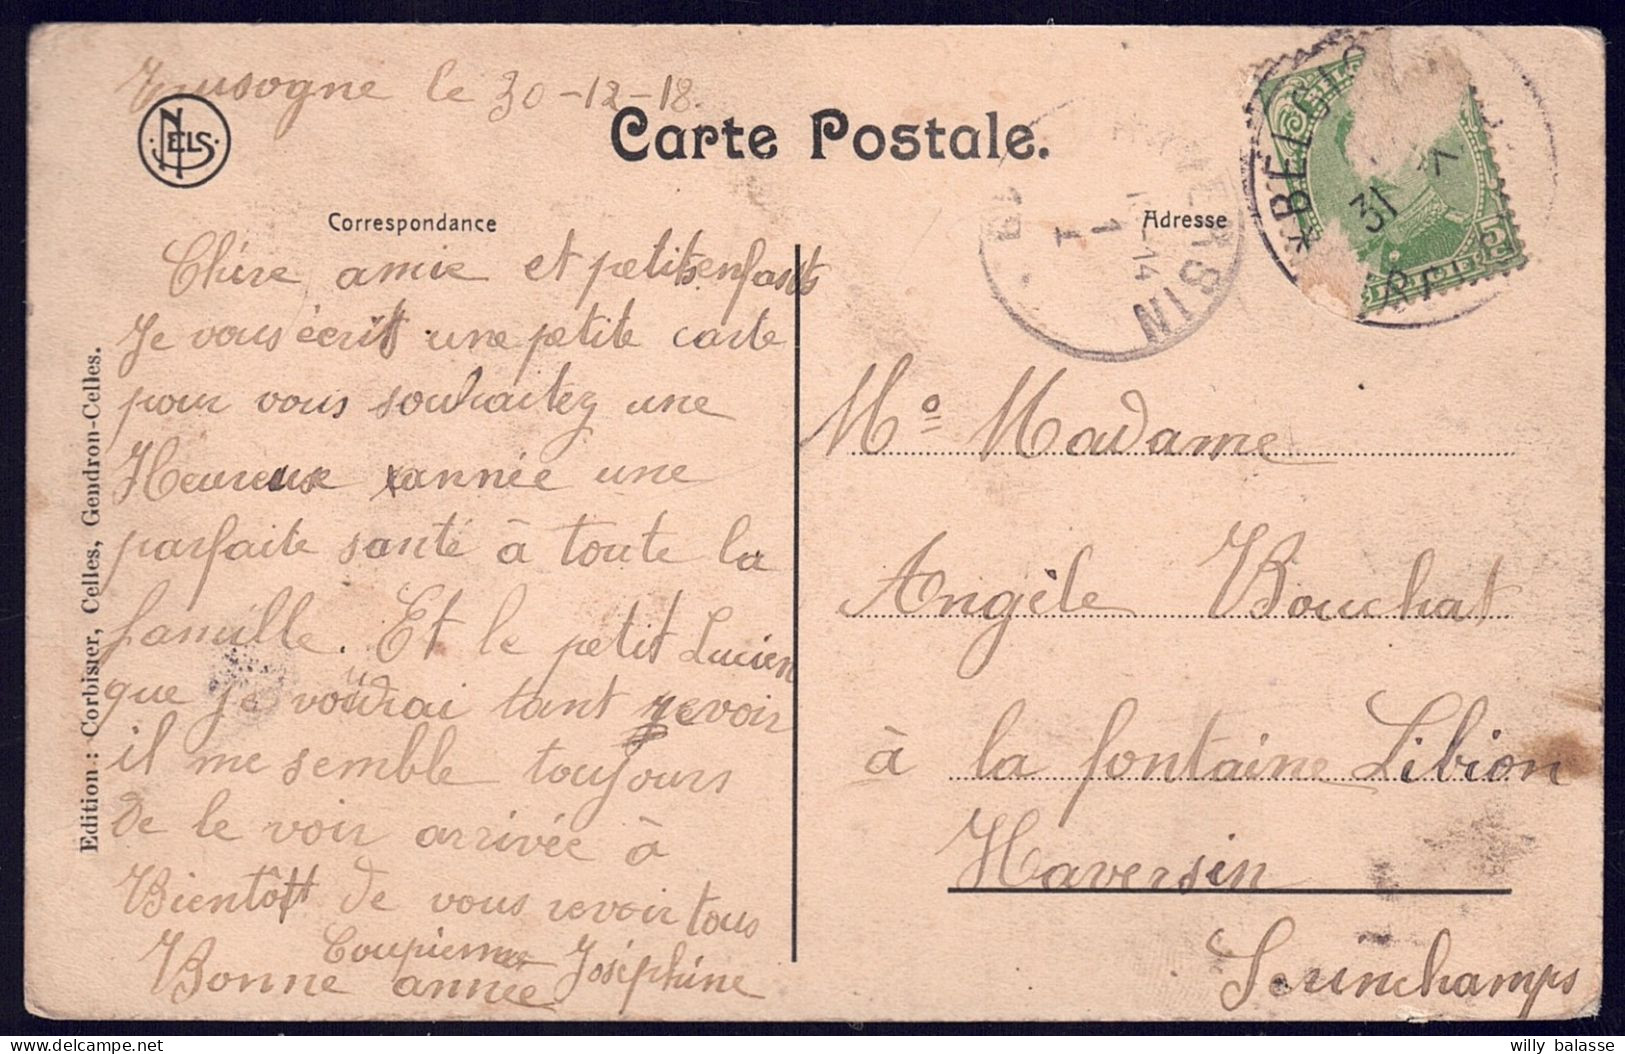 le 30-12-18.
NELS
Carte Postale.
Correspondance
Adresse
Chère amie et petits enfants
Je vous écrit une petite carte
pour vous souhaitez une
Heureuse année une
parfaite santé à toute la
famille. Et le petit Lucien
que je voudrai tant revoir
il me semble toujours
de le voir arrivée à
Bientôt de vous revoir tous
Bonne année
Joséphine
Edition : Corbisier, Celles, Gendron-Celles.
Madame
Angèle Bouchat
à la fontaine Libion
Haversin
Serinchamps
*BELGI
31
5
ERSIN
14
1
I
19
willy balasse